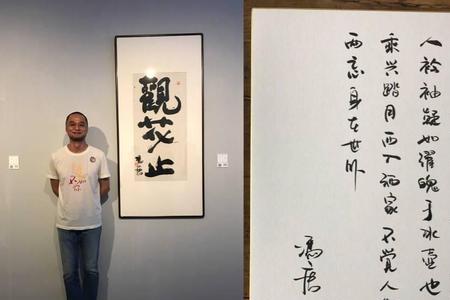 觀花止
人衣袖疑如濯魄于冰壺也
乘兴踏月西入酒家不觉人
两忘身在世外
冯唐